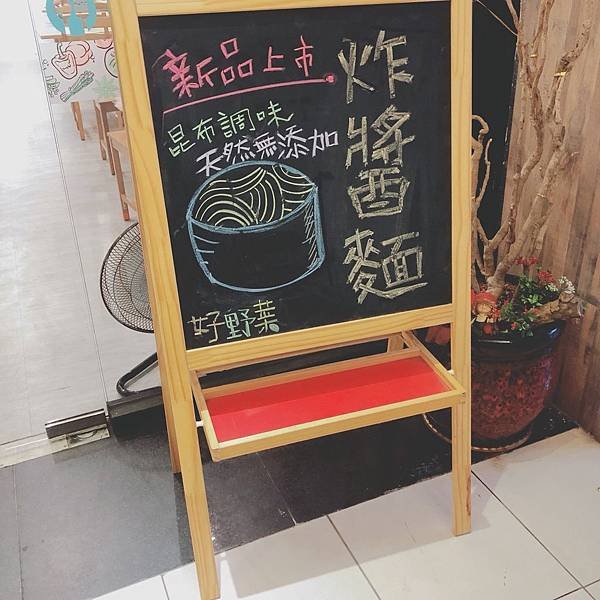 新品上市
炸醬麵
昆布調味
天然無添加
好野菜